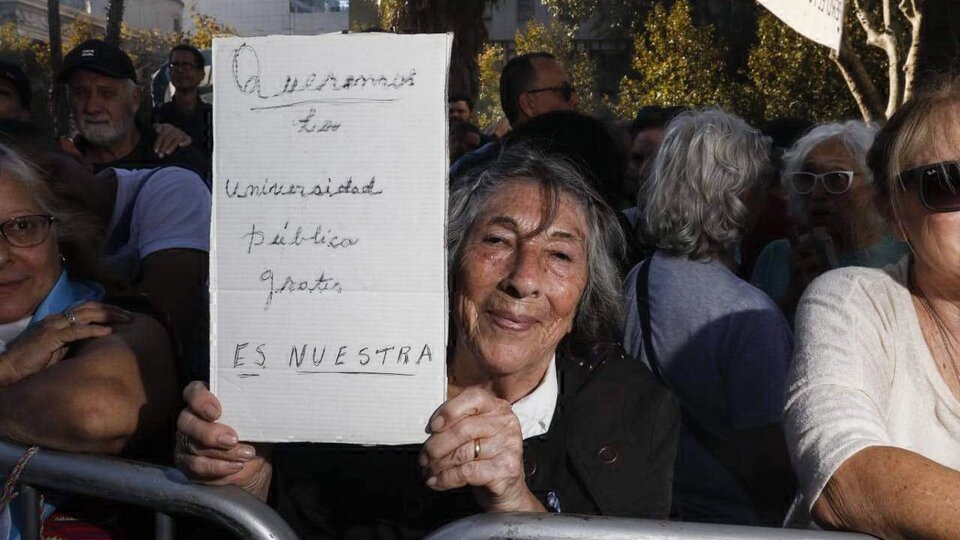 Queremos
la
universidad
pública
gratis
ES NUESTRA